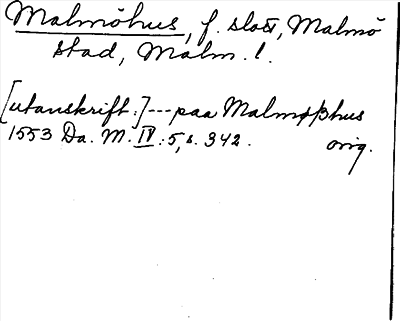 Malmöhus, f. slott, Malmö
stad, Malm. l.
[utanskrift:] --- paa Malmøßhus
1553 Da. M. IV:5, s. 342. orig.